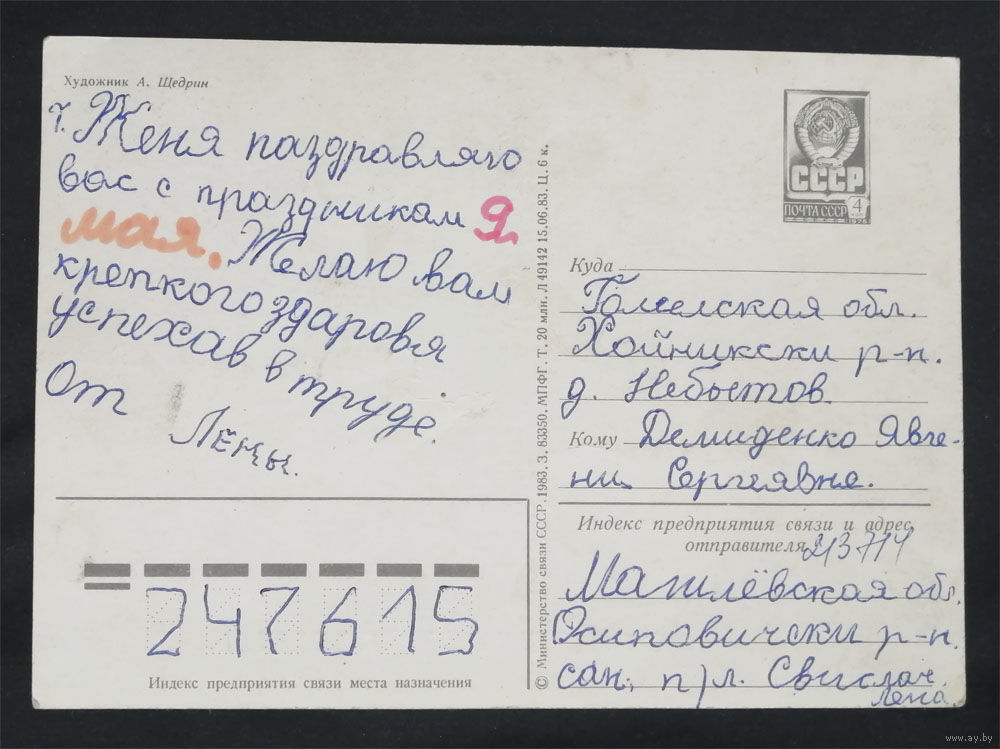 Художник А. Щедрин
т. Женя паздравляю
вас с праздникам 9
мая. Желаю вам
крепкого здаровья
успехав в труде.
От
Лены.
СССР
ПОЧТА СССР 4
1976
Куда
Гомелская обл.
Хойникски р-н.
д. Небытов.
Кому Демиденко Явге-
ни Сергеявне.
Индекс предприятия связи и адрес
отправителя 213714
Магилёвская обл.
Осиповически р-н.
сан. п/л. Свислач.
Лена.
247615
Индекс предприятия связи места назначения
© Министерство связи СССР. 1983. З. 83350. МПФГ. Т. 20 млн. Л 49142 15.06.83. Ц. 6 к.
www.ay.by